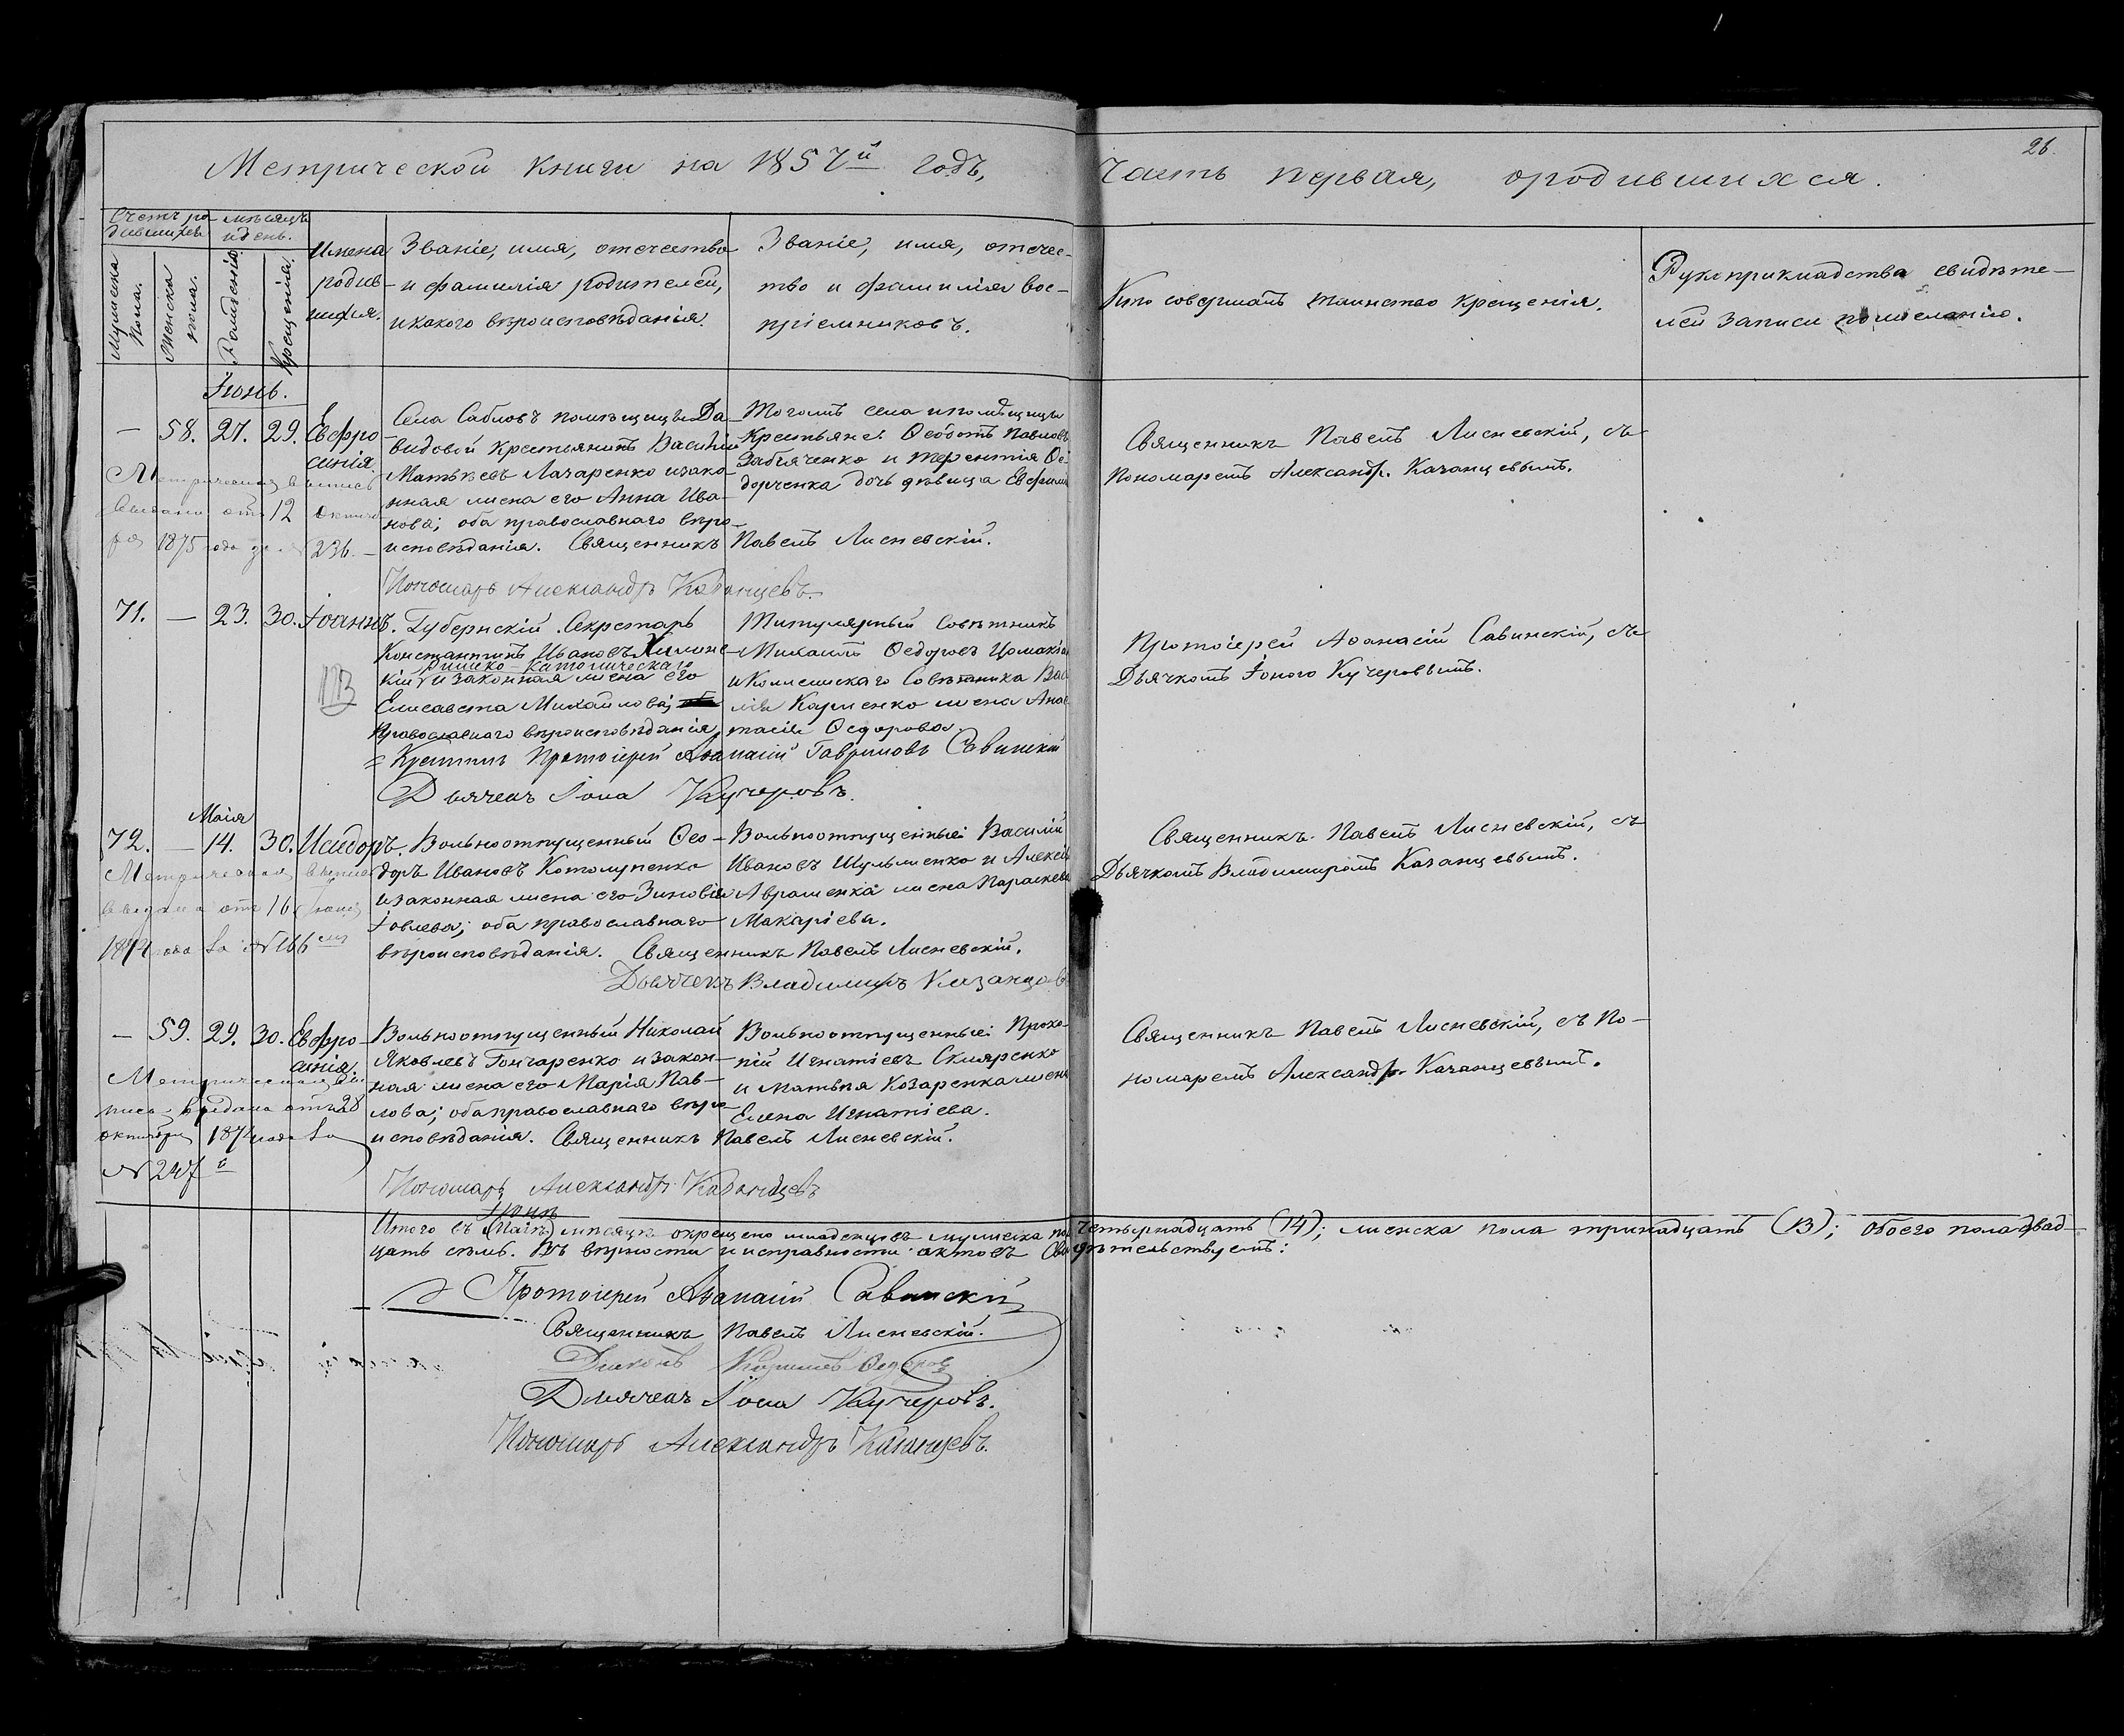 26.
Метрической книги на 1857й годъ, часть первая, ородившихся.
Счетъ родившихся
мѣсяцъ и день.
Мужеска пола.
Женска пола.
Рожденія.
Крещенія.
Имена родившихся.
Званіе, имя, отечество
и фамилія родителей,
и какого вѣроисповѣданія.
Званіе, имя, отечес-
тво и фамилія вос-
пріемниковъ.
Кто совершалъ таинство крещенія.
Рукоприкладства свидѣте-
лей записи по желанію.
Іюнь.
— 58. 27. 29. Евфро
синія.
Села Сабловъ помѣщицы Да-
видовой крестьянинъ Василій
Матѳеевъ Лазаренко изако-
нная жена его Анна Ива-
нова; оба православнаго вѣро-
исповѣданія. Священникъ Павелъ Лисневскій.
Пономарь Александръ Казанцевъ.
Тогожъ села ипомѣщицы
Крестьяне: Ѳеодотъ Павловъ
Забіяченко и Терентія Ѳе
дорченка дочь дѣвица Евфимі
Священникъ Павелъ Лисневскій, съ
Пономаремъ Александр. Казанцевымъ.
Метрическая выпись
выдана отъ 12 октяб
ря 1875 года за № 236.
71. — 23. 30. Іоаннъ.
Губернскій Секретарь
Константинъ Ивановъ Хилинс-
Римско-католическаго
кій и законная жена его
Елисавета Михайлова;
Православнаго вѣроисповѣданія
Крестилъ Протоіерей Аѳанасій Гавриловъ Савинскій
Дьячекъ Іона Кучеровъ.
Титулярный Совѣтникъ
Михаилъ Ѳедоровъ Цомакіо
и Коллежскаго Совѣтника Вас
лія Карпенко жена Анас
тасія Ѳедорова.
Протоіерей Аѳанасій Савинскій, съ
Дьячкомъ Іоною Кучеровымъ.
Маія
72. — 14. 30. Исидоръ.
Вольноотпущенный Ѳео-
доръ Ивановъ Котолупенко
изаконная жена его Зиновія
Іовлева; оба православнаго
вѣроисповѣданія. Священникъ Павелъ Лисневскій.
Дьячекъ Владимиръ Казанцовъ
Вольноотпущенные: Василій
Ивановъ Шульженко и Алексѣя
Авраменка жена Параскева
Макаріева.
Священникъ Павелъ Лисневскій, съ
Дьячкомъ Владимиромъ Казанцевымъ.
Метрическая выпись
выдана отъ 16
187 года за № 166
— 59. 29. 30. Евфро-
синія.
Вольноотпущенный Николай
Яковлевъ Гончаренко изакон-
ная жена его Марія Пав-
лова; оба православнаго вѣро-
исповѣданія. Священникъ Павелъ Лисневскій.
Пономарь Александръ Казанцевъ
Вольноотпущенные: Проко-
пій Игнатіевъ Скляренко
и Матвѣя Козаренка жена
Елена Игнатіева.
Священникъ Павелъ Лисневскій, съ По-
номаремъ Александр. Казанцевымъ.
Метрическая вы
пись выдана отъ 28
октября 187 года за
№ 247
Іюнѣ
Итого въ (Маіѣ) мѣсяцѣ окрещено младенцовъ мужеска пол четырнадцать (14); женска пола тринадцать (13); обоего пола двад-
цать семь. Въ вѣрности и исправности актовъ свидѣтельствуемъ:
Протоіерей Аѳанасій Савинскій
Священникъ Павелъ Лисневскій.
Діаконъ Кириллъ Ѳедоров
Дьячекъ Іона Кучеровъ.
Пономарь Александръ Казанцевъ.